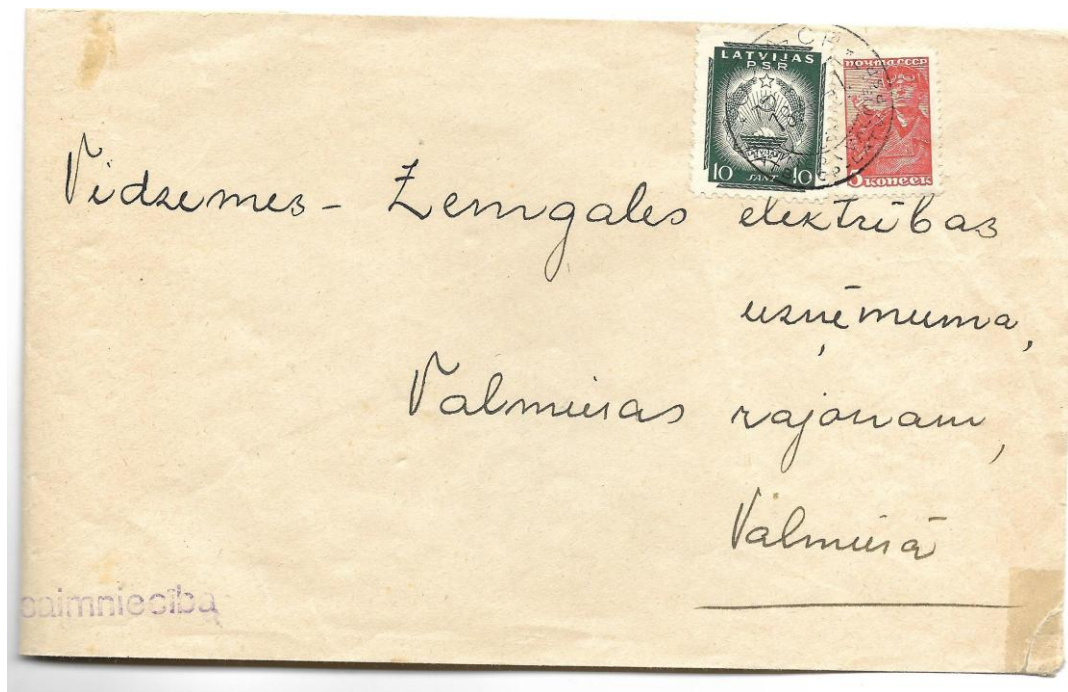 LATVIJAS
PSR
10 SANT. 10
ПОЧТА СССР
5 КОПЕЕК
Vidzemes - Zemgales elektrības
uzņēmuma,
Valmieras rajonam,
Valmierā
saimniecība